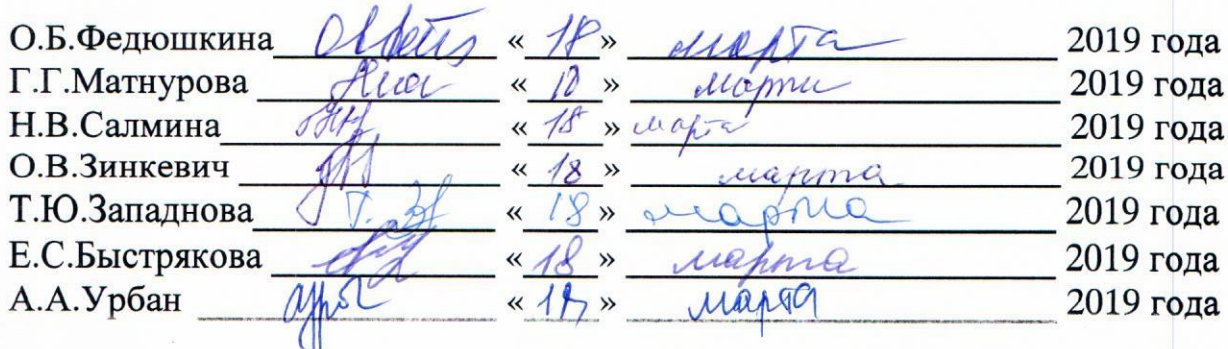 О.Б.Федюшкина «18» марта 2019 года
Г.Г.Матнурова «18» марта 2019 года
Н.В.Салмина «18» марта 2019 года
О.В.Зинкевич «18» марта 2019 года
Т.Ю.Западнова «18» марта 2019 года
Е.С.Быстрякова «18» марта 2019 года
А.А.Урбан «18» марта 2019 года